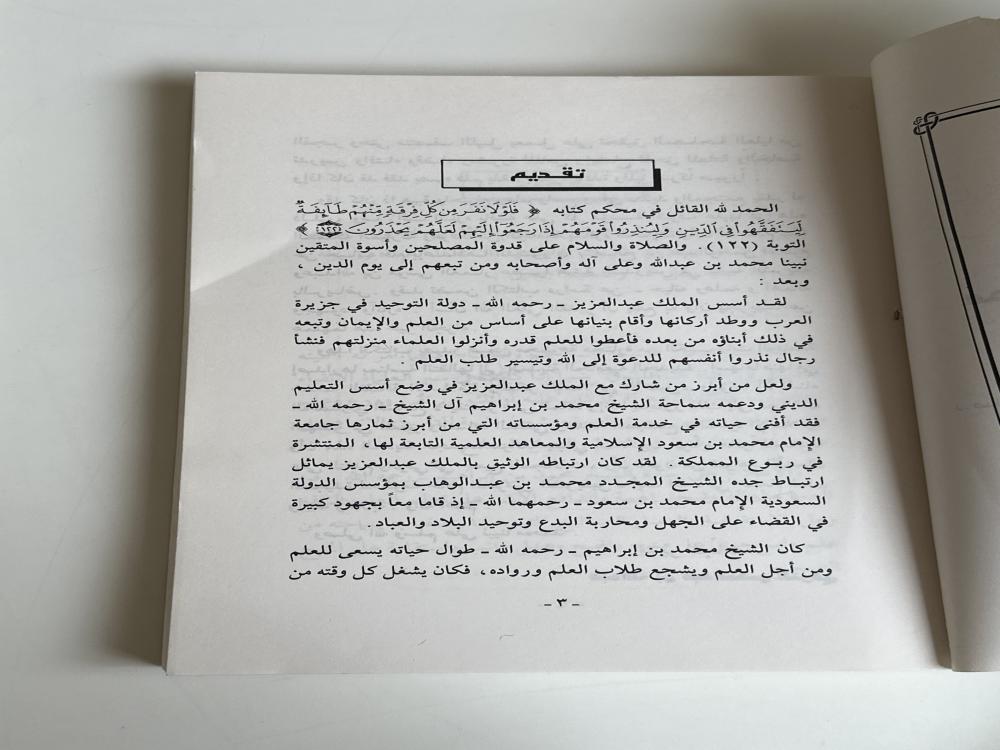 تقديم
الحمد لله القائل في محكم كتابه ﴿ فَلَوْلَا نَفَرَ مِن كُلِّ فِرْقَةٍ مِّنْهُمْ طَآئِفَةٌ
لِّيَتَفَقَّهُوا۟ فِي ٱلدِّينِ وَلِيُنذِرُوا۟ قَوْمَهُمْ إِذَا رَجَعُوٓا۟ إِلَيْهِمْ لَعَلَّهُمْ يَحْذَرُونَ ١٢٢ ﴾
التوبة (١٢٢). والصلاة والسلام على قدوة المصلحين وأسوة المتقين
نبينا محمد بن عبدالله وعلى آله وأصحابه ومن تبعهم إلى يوم الدين ،
وبعد :
لقـد أسس الملك عبدالعزيز ـ رحمه الله ـ دولة التوحيد في جزيرة
العرب ووطد أركانها وأقام بنيانها على أساس من العلم والإيمان وتبعه
في ذلك أبناؤه من بعده فأعطوا للعلم قدره وأنزلوا العلماء منزلتهم فنشأ
رجال نذروا أنفسهم للدعوة إلى الله وتيسير طلب العلم .
ولعل من أبرز من شارك مع الملك عبدالعزيز في وضع أسس التعليم
الديني ودعمه سماحة الشيخ محمد بن إبراهيم آل الشيخ ـ رحمه الله ـ
فقد أفنى حياته في خدمة العلم ومؤسساته التي من أبرز ثمارها جامعة
الإمام محمد بن سعود الإسلامية والمعاهد العلمية التابعة لها، المنتشرة
في ربوع المملكة. لقد كان ارتباطه الوثيق بالملك عبدالعزيز يماثل
ارتباط جده الشيخ المجدد محمـد بن عبدالوهاب بمؤسس الدولة
السعودية الإمام محمد بن سعود ـ رحمهما الله ـ إذ قاما معاً بجهود كبيرة
في القضاء على الجهل ومحاربة البدع وتوحيد البلاد والعباد.
كان الشيخ محمد بن إبراهيم ـ رحمه الله ـ طوال حياته يسعى للعلم
ومن أجل العلم ويشجع طلاب العلم ورواده، فكان يشغل كل وقته من
ـ ٣ ـ